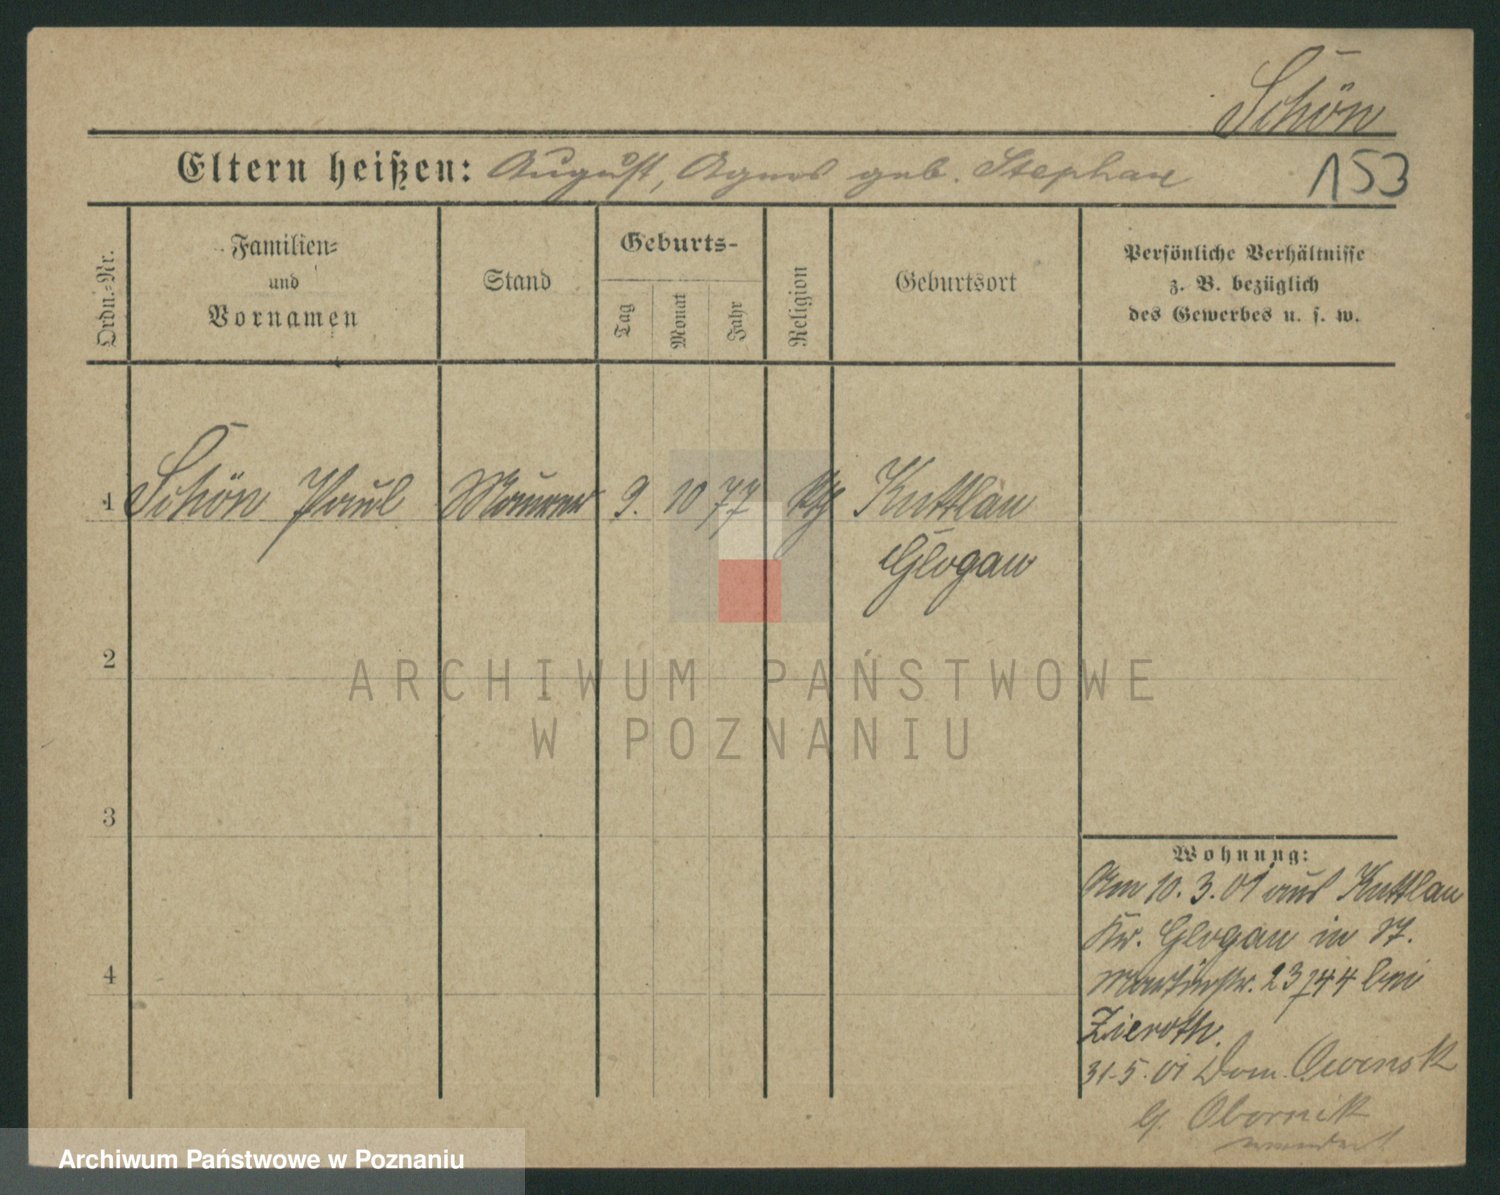 Schön
Eltern heißen: August, Agnes geb. Stephan
153
Ordn.-Nr.
Familien-
und
Vornamen
Stand
Geburts-
Tag
Monat
Jahr
Religion
Geburtsort
Persönliche Verhältnisse
z. B. bezüglich
des Gewerbes u. s. w.
1 Schön Paul Maurer 9. 10 77 Kth Kuttlau
Glogau
2
3
4
ARCHIWUM PAŃSTWOWE
W POZNANIU
Wohnung:
Am 10.3.01 aus Kuttlau
Kr. Glogau in St.
Martinstr. 23/44 bei
Zieroth.
31.5.01 Dom. Owinsk
Obornik
Archiwum Państwowe w Poznaniu